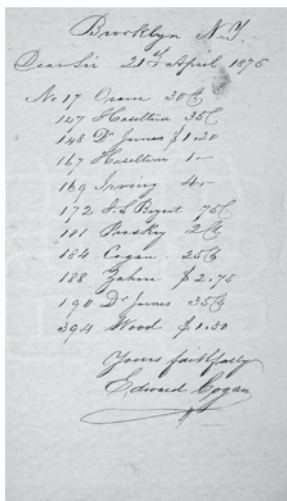 Brooklyn N.Y.
Dear Sir 21st April 1875
No 17 Oram 30c
127 Haseltine 35c
148 Dr James $1.20
167 Haseltine 1.-
169 Irving 4.-
172 J. S. Bryant 75c
181 2c
184 Cogan 25c
188 Zahm $2.75
190 Dr James 35c
394 Wood $1.30
Yours faithfully
Edward Cogan